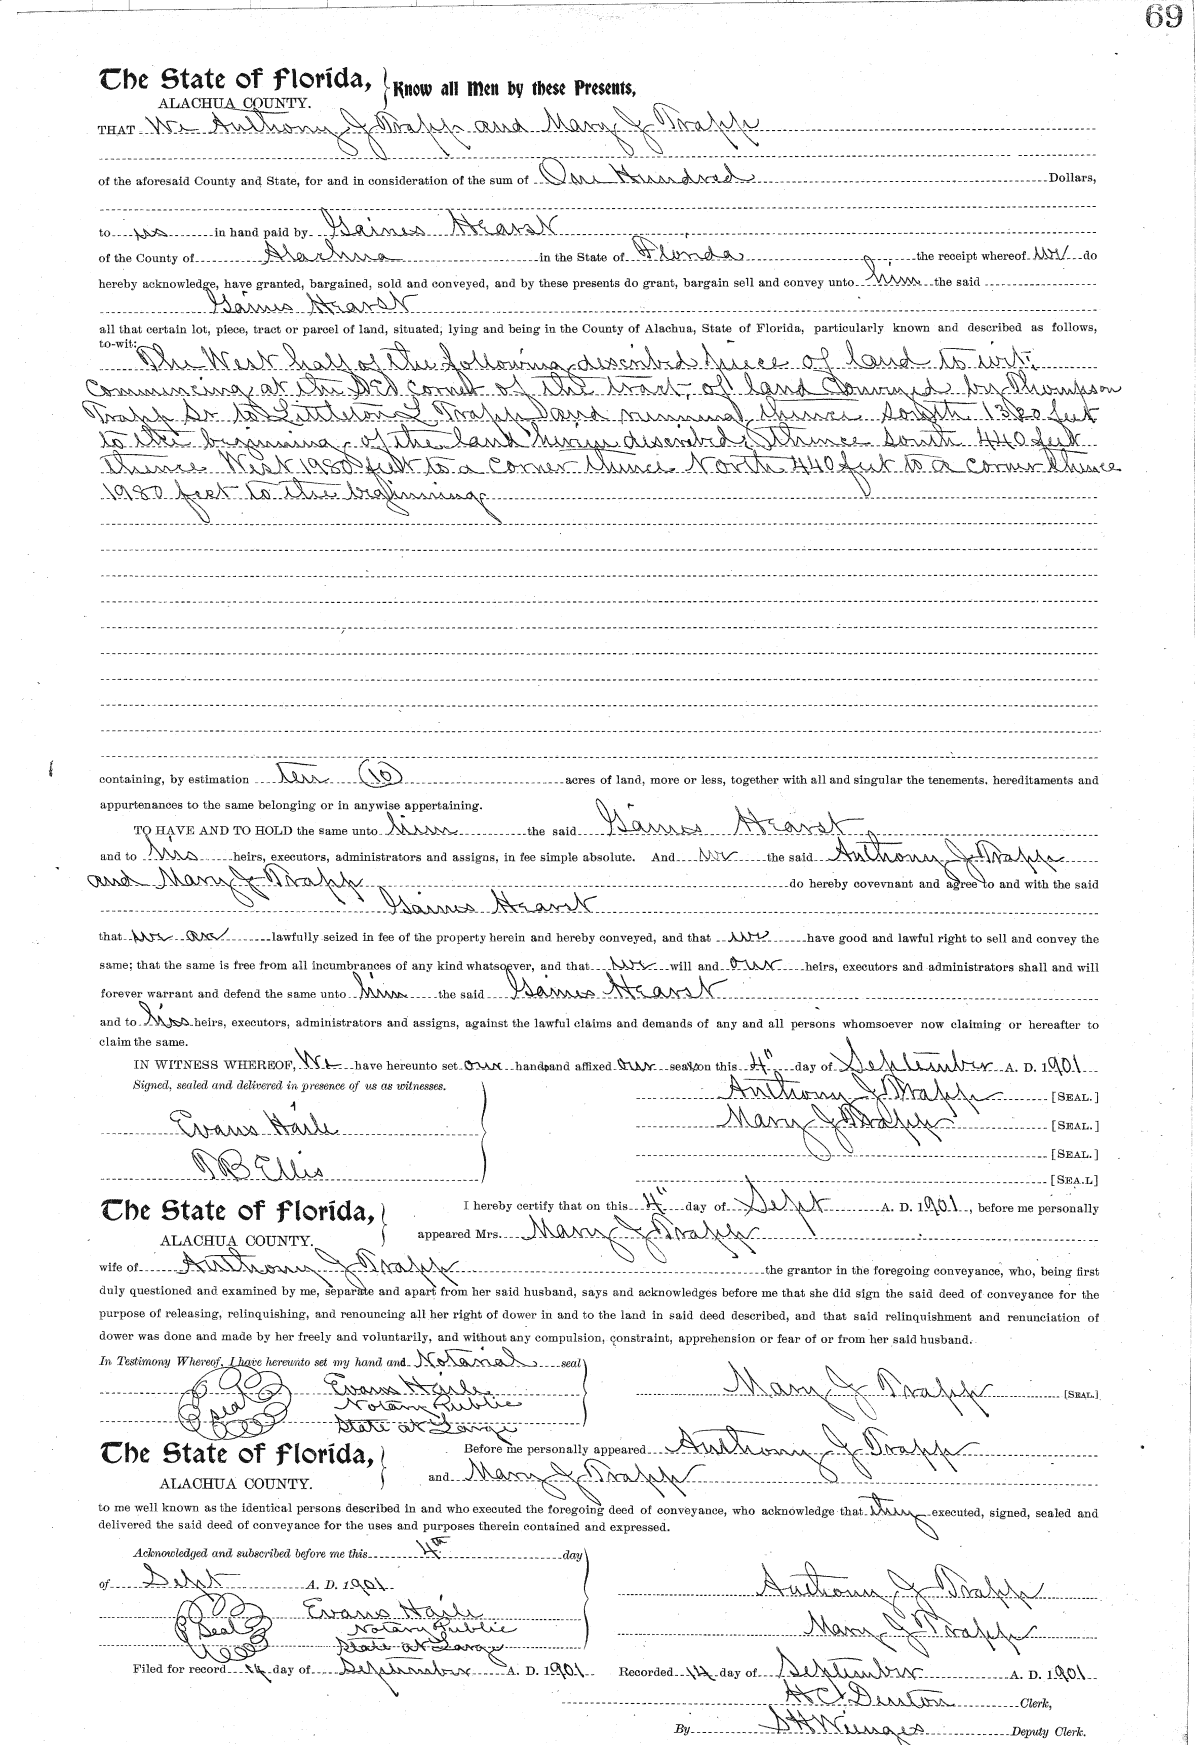 69
The State of Florida, Know all Men by these Presents,
ALACHUA COUNTY.
THAT We Anthony J Trapp and Mary J Trapp
of the aforesaid County and State, for and in consideration of the sum of One Hundred Dollars,
to us in hand paid by Gaines Hearst
of the County of Alachua in the State of Florida the receipt whereof we do
hereby acknowledge, have granted, bargained, sold and conveyed, and by these presents do grant, bargain sell and convey unto him the said
Gaines Hearst
all that certain lot, piece, tract or parcel of land, situated, lying and being in the County of Alachua, State of Florida, particularly known and described as follows,
to-wit:
The West half of the following described piece of land to wit:
Commencing at the corner of the tract of land Conveyed by Thompson
Trapp Sr to Littleton L Trapp and running thence South 1320 feet
to the beginning of the land herein described, thence South 440 feet
thence West 1980 feet to a corner thence North 440 feet to a corner thence
1980 feet to the beginning.
containing, by estimation ten (10) acres of land, more or less, together with all and singular the tenements, hereditaments and
appurtenances to the same belonging or in anywise appertaining.
TO HAVE AND TO HOLD the same unto him the said Gaines Hearst
and to his heirs, executors, administrators and assigns, in fee simple absolute. And we the said Anthony J Trapp
and Mary J Trapp do hereby covevnant and agree to and with the said
Gaines Hearst
that we are lawfully seized in fee of the property herein and hereby conveyed, and that we have good and lawful right to sell and convey the
same; that the same is free from all incumbrances of any kind whatsoever, and that we will and our heirs, executors and administrators shall and will
forever warrant and defend the same unto him the said Gaines Hearst
and to his heirs, executors, administrators and assigns, against the lawful claims and demands of any and all persons whomsoever now claiming or hereafter to
claim the same.
IN WITNESS WHEREOF, We have hereunto set our hands and affixed our seals on this 4" day of September A. D. 1901
Signed, sealed and delivered in presence of us as witnesses. Anthony J Trapp [SEAL.]
Evans Haile Mary J Trapp [SEAL.]
[SEAL.]
B Ellis [SEA.L]
The State of Florida, I hereby certify that on this 4" day of Sept A. D. 1901, before me personally
ALACHUA COUNTY. appeared Mrs. Mary J Trapp
wife of Anthony J Trapp the grantor in the foregoing conveyance, who, being first
duly questioned and examined by me, separate and apart from her said husband, says and acknowledges before me that she did sign the said deed of conveyance for the
purpose of releasing, relinquishing, and renouncing all her right of dower in and to the land in said deed described, and that said relinquishment and renunciation of
dower was done and made by her freely and voluntarily, and without any compulsion, constraint, apprehension or fear of or from her said husband.
In Testimony Whereof, I have hereunto set my hand and Notarial seal
seal Evans Haile Mary J Trapp [SEAL.]
Notary Public
State at Large
The State of Florida, Before me personally appeared Anthony J Trapp
ALACHUA COUNTY. and Mary J Trapp
to me well known as the identical persons described in and who executed the foregoing deed of conveyance, who acknowledge that they executed, signed, sealed and
delivered the said deed of conveyance for the uses and purposes therein contained and expressed.
Acknowledged and subscribed before me this 4th day
of Sept A. D. 1901 Anthony J Trapp
Seal Evans Haile
Notary Public Mary J Trapp
State at Large
Filed for record 14 day of September A. D. 1901 Recorded 14 day of September A. D. 1901
Denton Clerk,
By S H Wienges Deputy Clerk.